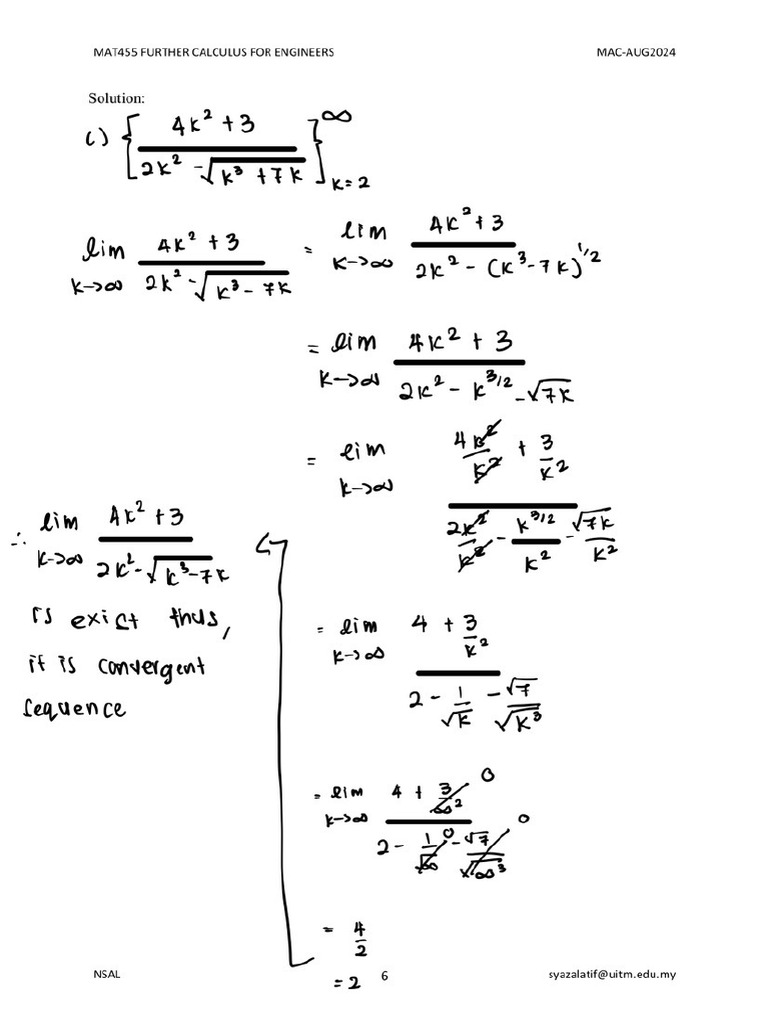 MAT455 FURTHER CALCULUS FOR ENGINEERS MAC-AUG2024
Solution:
c) {(4k² + 3)/(2k² - √(k³ + 7k))}_{k=2}^∞
lim k→∞ (4k² + 3)/(2k² - √(k³ - 7k)) = lim k→∞ (4k² + 3)/(2k² - (k³ - 7k)^{1/2})
= lim k→∞ (4k² + 3)/(2k² - k^{3/2} - √7k)
= lim k→∞ (4k²/k² + 3/k²)/(2k²/k² - k^{3/2}/k² - √7k/k²)
= lim k→∞ (4 + 3/k²)/(2 - 1/√k - √7/√k³)
= lim k→∞ (4 + 3/∞² 0)/(2 - 1/√∞ 0 - √7/√∞³ 0)
= 4/2
= 2
∴ lim k→∞ (4k² + 3)/(2k² - √(k³ - 7k))
is exist thus,
it is convergent
sequence
NSAL 6 syazalatif@uitm.edu.my